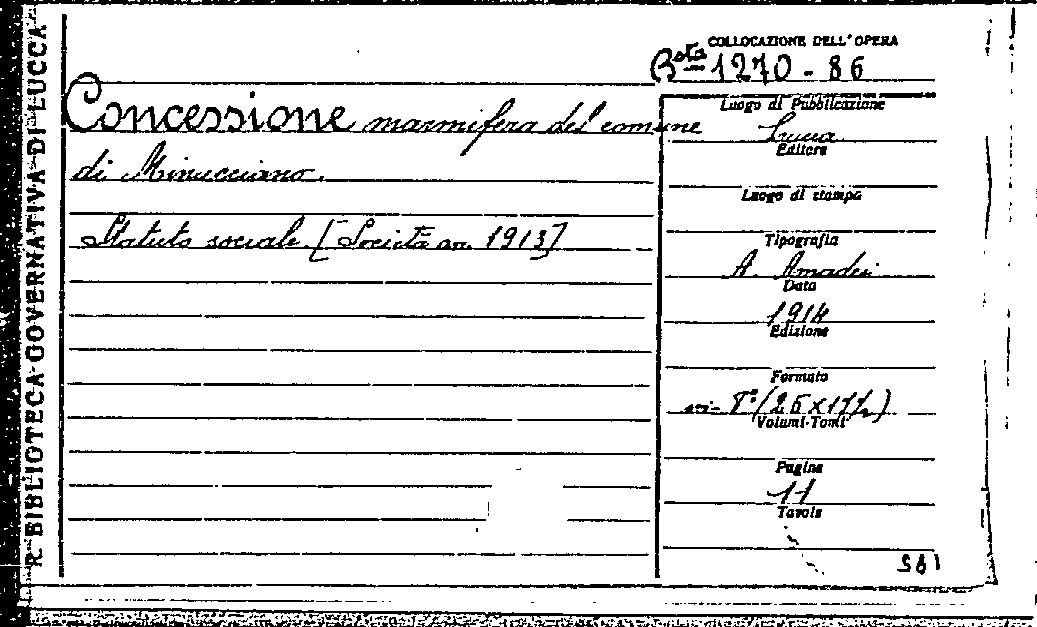 R. BIBLIOTECA GOVERNATIVA DI LUCCA
COLLOCAZIONE DELL'OPERA
B.sta 1270 - 86
Concessione marmifera del comune
di Minucciano.
Statuto sociale [Società an. 1913]
Luogo di Pubblicazione
Lucca
Editore
Luogo di stampa
Tipografia
A. Amadei
Data
1914
Edizione
Formato
in- 8° (25 x 17½)
Volumi-Tomi
Pagine
11
Tavole
581